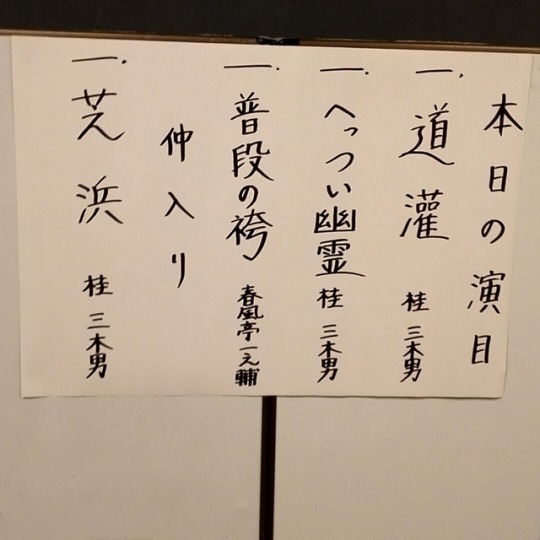 本日の演目
一.道灌 桂 三木男
一.へっつい幽霊 桂 三木男
一.普段の袴 春風亭一之輔
仲入り
一.芝浜 桂 三木男